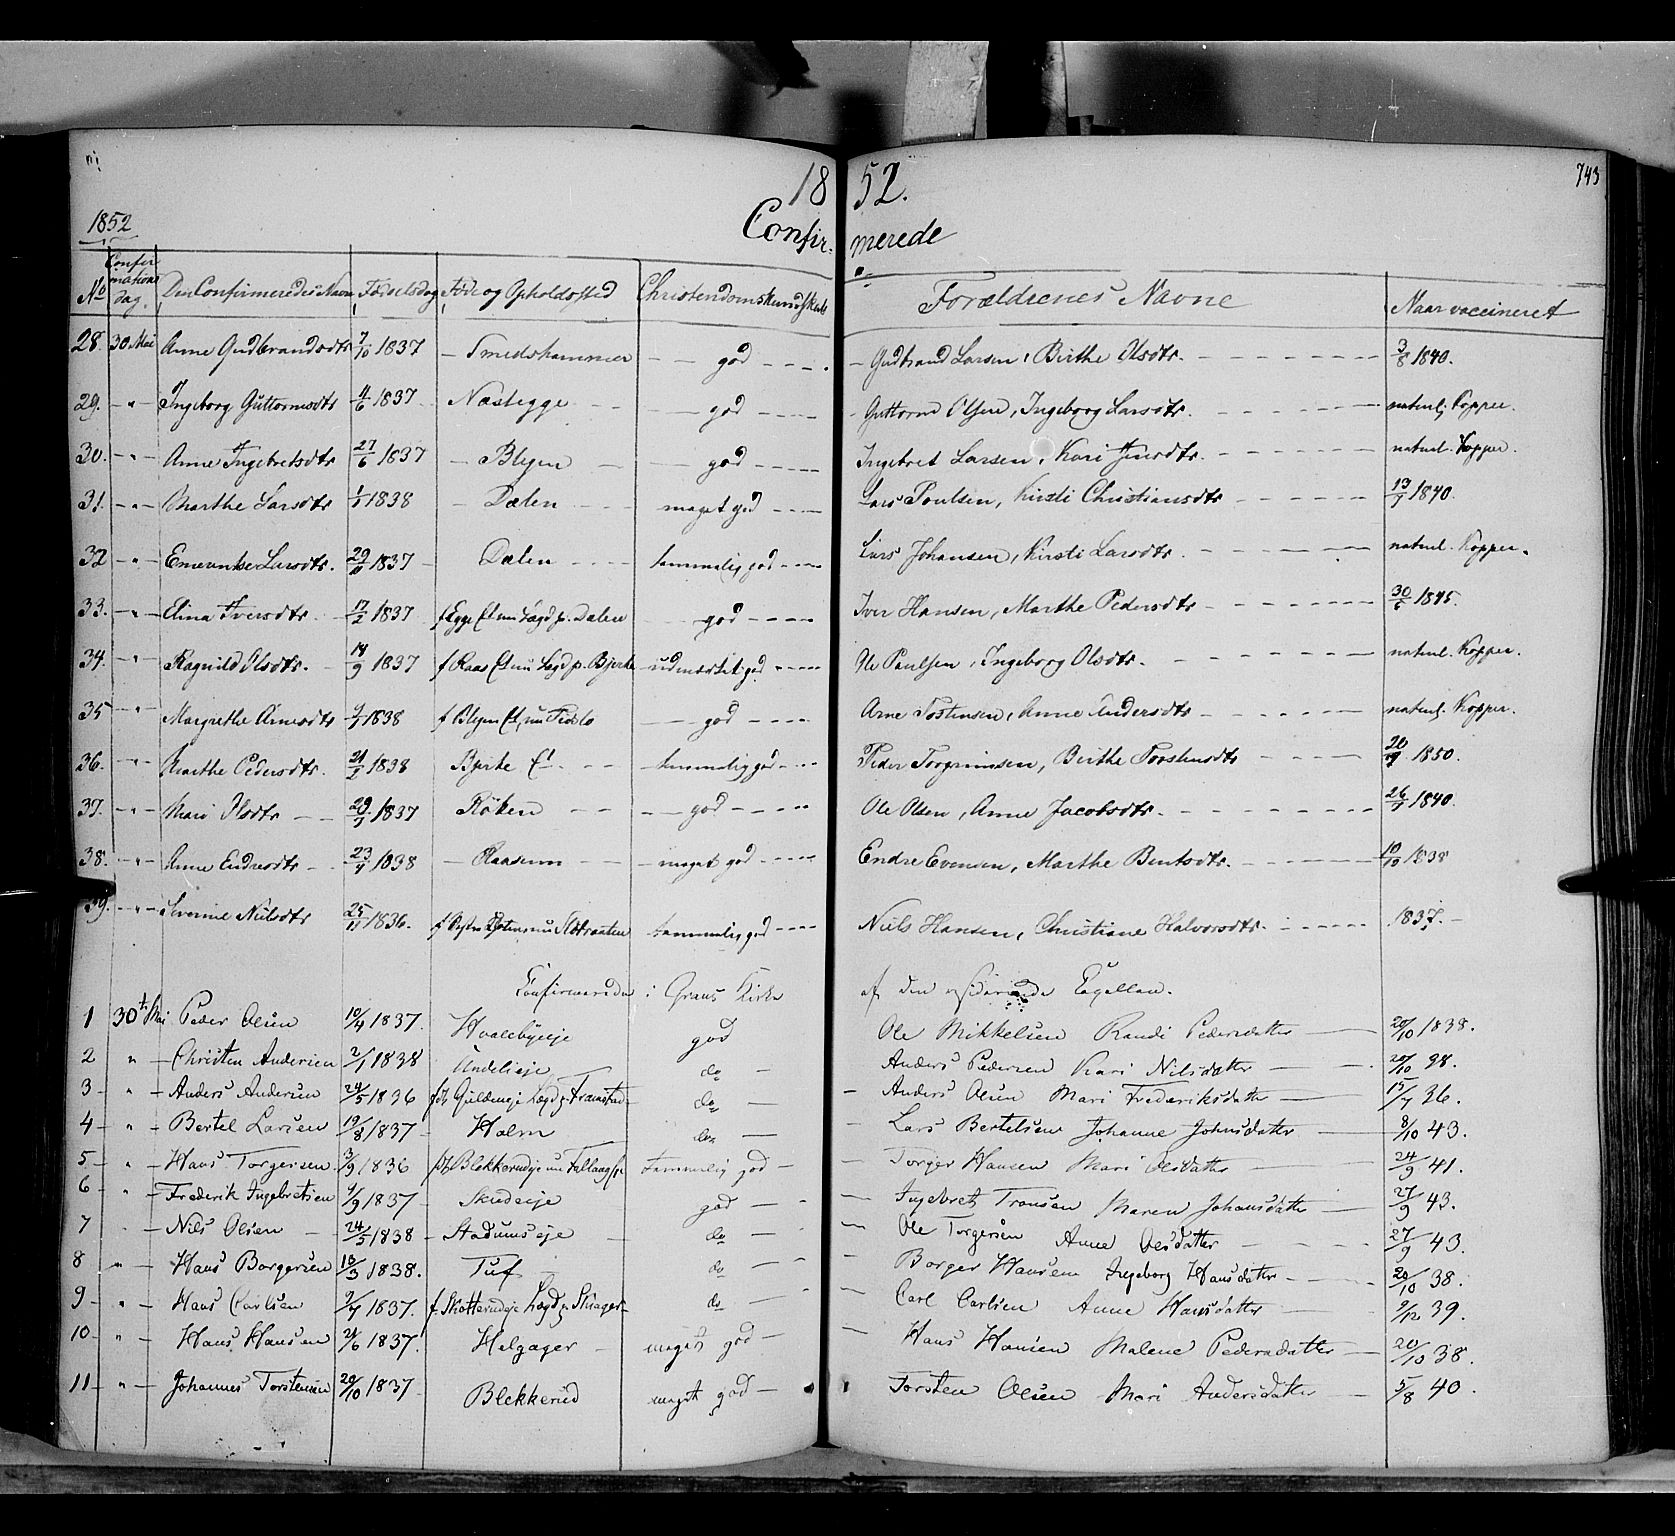 18 52. 743
1852
Confir- merede
No Confirmations dag. Den Confirmeredes Navn Fødselsdag Føde og Opholdssted Christendomskundskab Forældrenes Navne Naar vaccineret
28. 30 Mai Anne Gudbrandsdtr 7/10 1837 – Smedshammer – – god – – – – Gudbrand Larsen, Birthe Olsdtr. – – – 3/8 1840.
29. – " – Ingeborg Guttormsdtr 4/6 1837 Næstegge – – – god – – – Guttorm Olsen, Ingeborg Larsdtr. – – – naturl. Kopper.
30. – " – Anne Ingebretsdtr 27/6 1837 – Blegen – – god – – – Ingebret Larsen, Kari – – – naturl. Kopper.
31. – " – Marthe Larsdtr 1838 – Dælen – – meget god – – – Lars Poulsen, Kirsti Christiansdtr – – – 13/7 1840.
32 – " – Larsdtr. 29/11 1837 – Dælen – – temmelig god – – – Lars Johansen, Kirsti Larsdtr. – – – naturl. Kopper.
33. – " – Elina Iversdtr 17/2 1837 f Egge Lægd p. Dælen god – – – Iver Hansen, Marthe Pedersdtr – – – 30/6 1845.
34. – " – Ragnild Olsdtr. – 14/9 1837 f Raas Lægd p. Bjerke udmærket god – – – Ole Paulsen, Ingeborg Olsdtr. – – – naturl. Kopper.
35 – " – Margrethe Arnesdtr 1838 f Blegen nu – god – – – Arne Tostensen, Anne Andersdtr – – – naturl. Kopper.
36. – " – Marthe Pedersdtr. 1838 Bjerke – – temmelig god – – – Peder Torgrimsen, Birthe Torstensdtr – – – 1850.
37. – " – Mari Olsdtr – – 29/7 1837 Røken – – god – – – Ole Olsen, Anne Jacobsdtr. – – – 26/7 1840.
38. – " – Anne Endresdtr – 23/4 1838 – Raasum – – meget god – – – Endre Evensen, Marthe Bentsdtr. – – – 10/10 1838
39. – " – Severine Nielsdtr 25/11 1836. temmelig god – – – Niels Hansen, Christiane Halvorsdtr. – – – 1837. –
Confirmerede i Grans Kirke af den residerende Capellan.
1 30te Mai Peder Olsen 10/4 1837. Hvalebyeje god Ole Mikkelsen Randi Pedersdatter – 20/10 1838.
2 " – Christen Andersen 2/1 1838 Undelieje do – Anders Pedersen Kari Nilsdatter – 20/10 38.
3 – " – Anders Andersen 24/5 1836 Guldeneje Lægd p. Framstad – do – – Anders Olsen Mari Frederiksdatter – 15/7 36.
4 – " – Bertel Larsen 19/8 1837 – Halm do – – Lars Bertelsen Johanne Johnsdatter – 8/10 43.
5 – " – Hans Torgersen 3/9 1836 Blekkerudeje nu temmelig god – – Torger Hansen Mari Olsdatter – 24/9 41.
6 – " – Frederik Ingebretsen 9/9 1837 – Skudeje god – – – Ingebret Tronsen Maren Johansdatter – 27/9 43.
7 " – Nils Olsen – 24/5 1838 – Stadumseje – do – – – Ole Torgersen Anne Olsdatter – – 27/9 43.
8 " – Hans Borgersen 18/3 1838. Tuf do – – – Borger Hansen Ingeborg Hansdatter – – 20/10 38.
9 – " – Hans Carlsen 9/7 1837. f. Skatterudeje Lægd p. do – – Carl Carlsen Anne Hansdatter – 9/12 39.
10 – " – Hans Hansen 21/6 1837. Helgager – meget god – – Hans Hansen Malene Pedersdatter – 20/10 38.
11 – " – Johannes Torstensen 20/10 1837 Blekkerud meget god – Torsten Olsen Mari Andersdatter – 5/8 40.